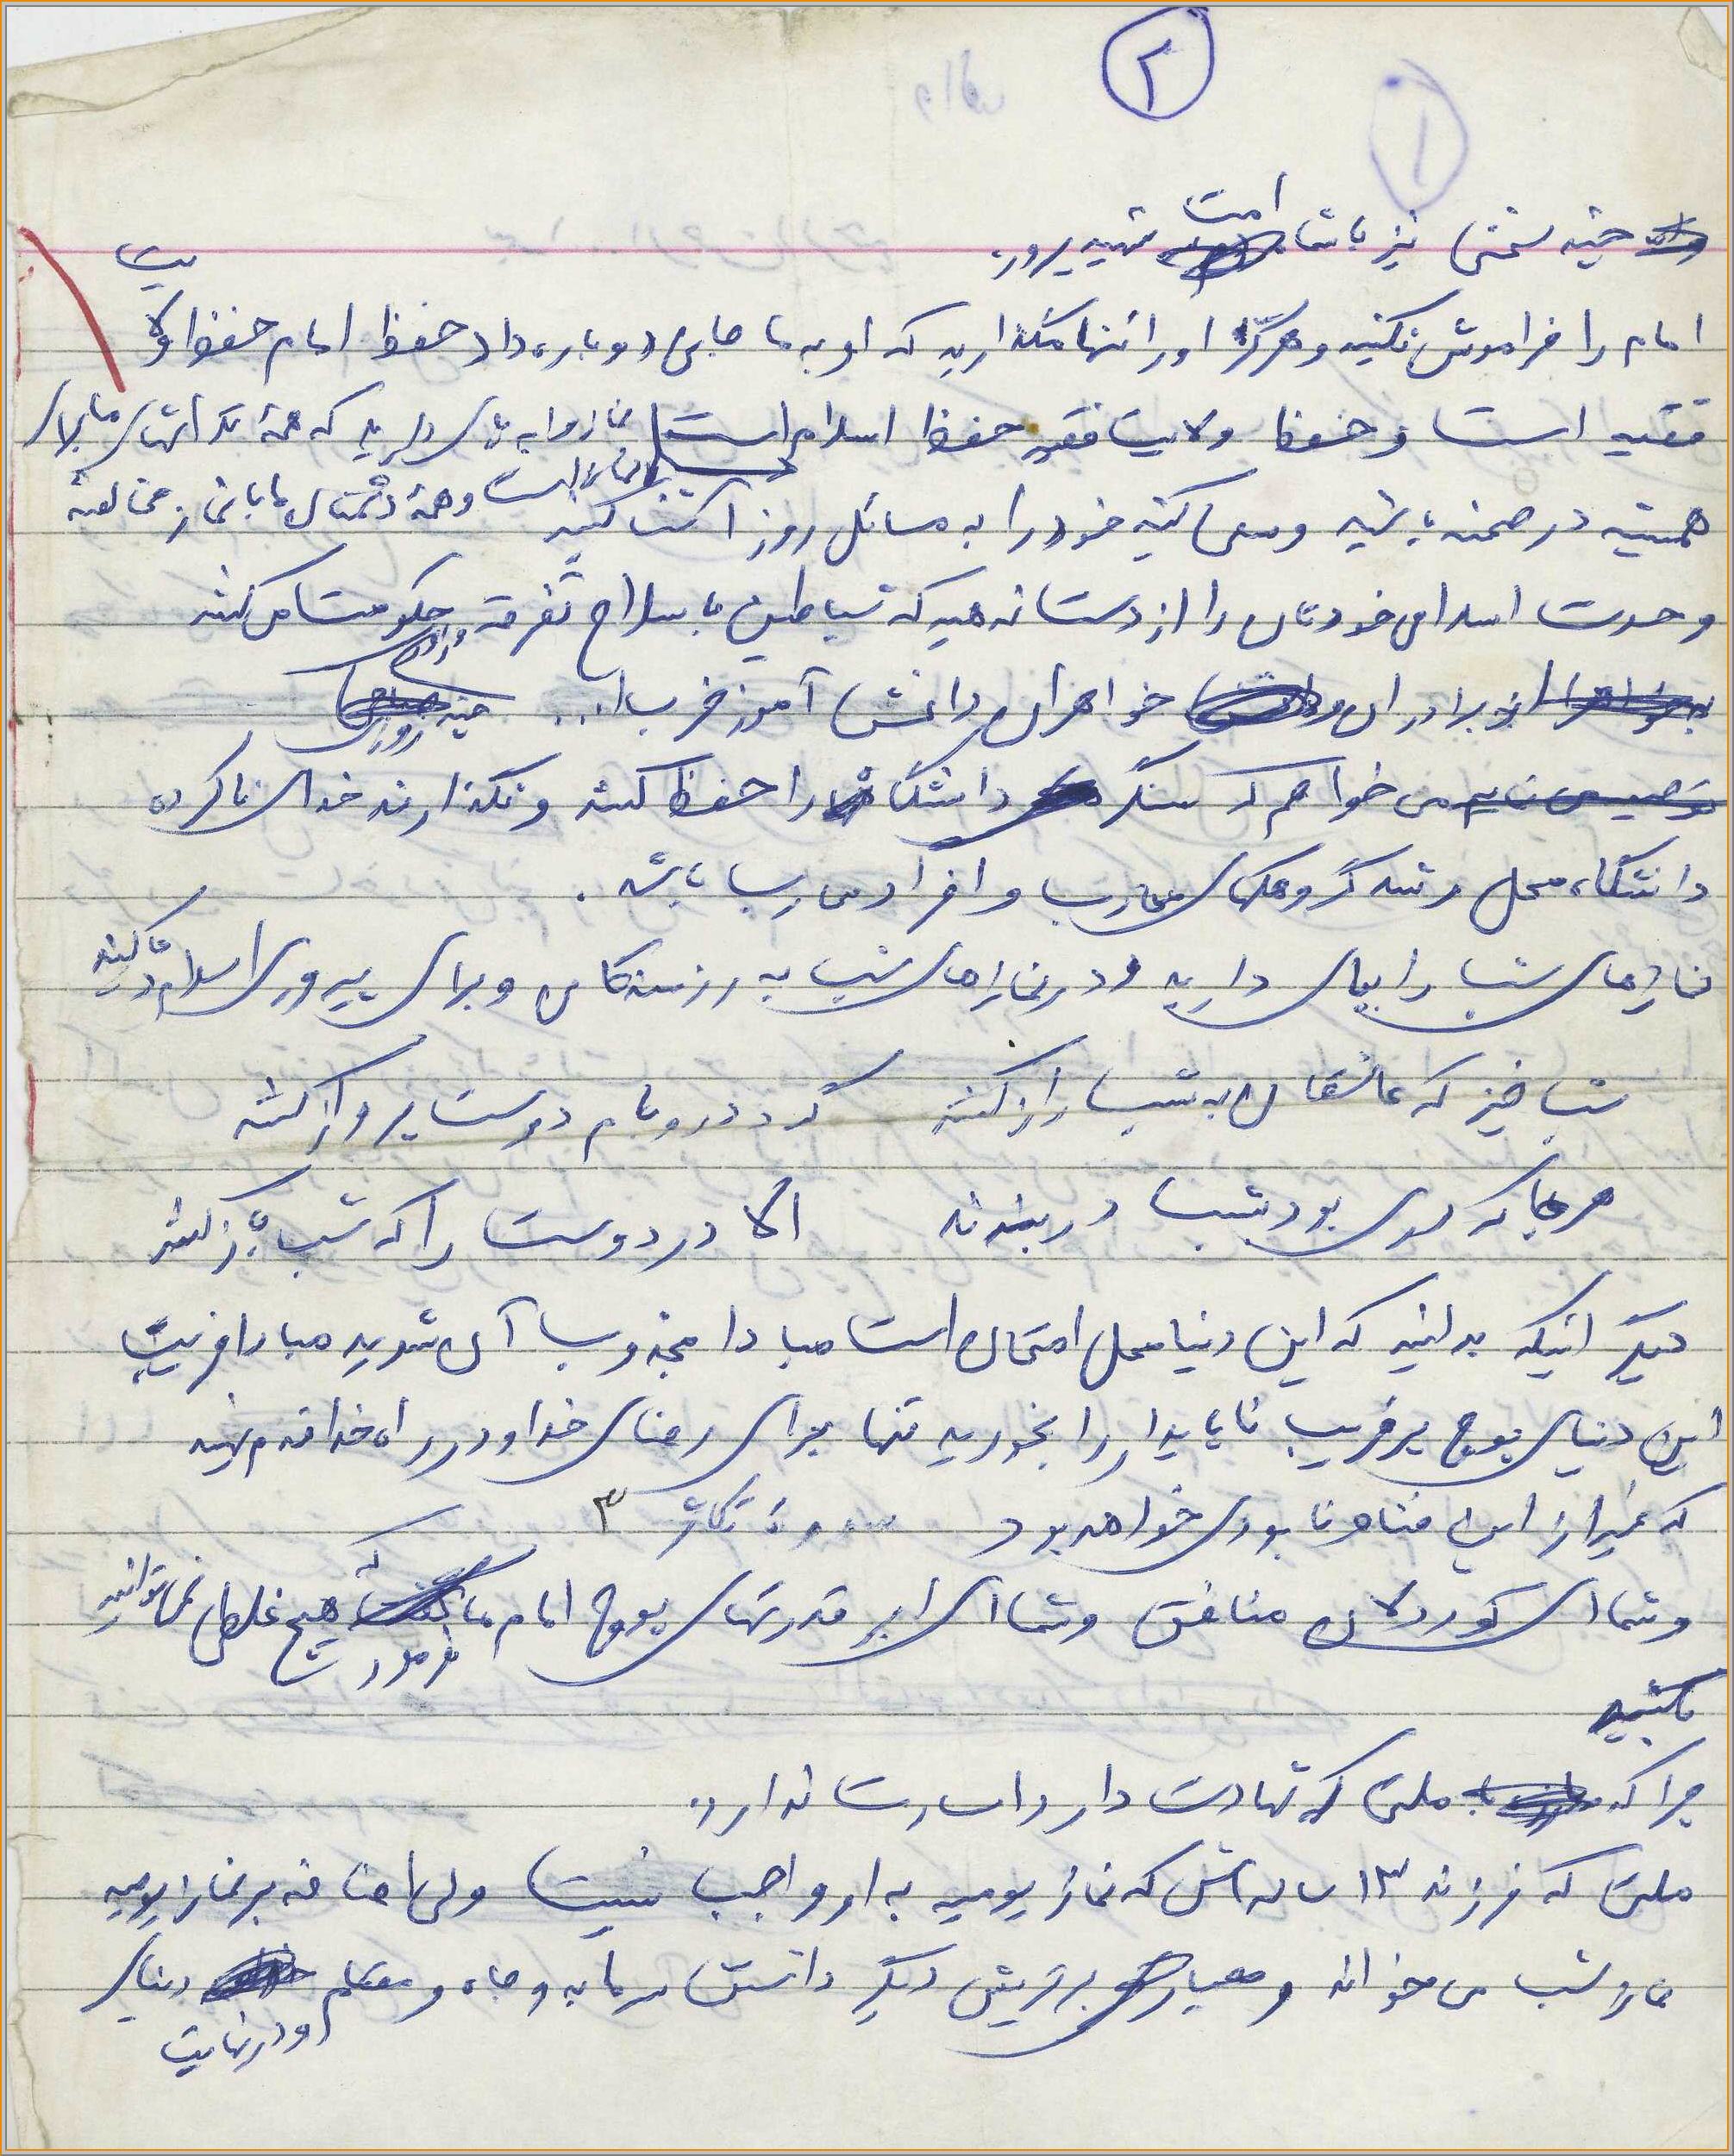 ۲
۱
چند سخنی نیز با شما امت شهید پرور.
امام را فراموش نکنید و هرگز او را تنها مگذارید که او به ما جانی دوباره داد حفظ امام حفظ ولایت
فقیه است و حفظ ولایت فقیه حفظ اسلام است نماز را به پای دارید که همهٔ
همیشه در صحنه باشید و سعی کنید خود را به مسائل روز آشنا کنید و همهٔ دشمنان ما با نماز مخالفند
وحدت اسلامی خودتان را از دست ندهید که شیاطین با سلاح تفرقه حکومت می کنند
از برادران و خواهران دانش آموز خرب... چند روزی
می خواهم که سنگر دانشگاه را حفظ کنند و نگذارند خدای ناکرده
دانشگاه محل رشد گروهکهای محارب و افراد محارب باشد.
نمازهای شب را بپای دارید و در نمازهای شب به رزمندگان و برای پیروزی اسلام دعا کنید
شب خیز که عاشقان به شب راز کنند گرد در و بام دوست پرواز کنند
هر جا که دری بود به شب در بندند الا در دوست را که شب باز کنند
دیگر اینکه بدانید که این دنیا محل امتحان است مبادا مجذوب آن شوید مبادا فریب
این دنیای پوچ پر فریب ناپایدار را بخورید تنها برای رضای خدا و در راه خدا قدم نهید
که غیر از این فنا و نابودی خواهد بود سورهٔ تکاثر ۳
و شما ای کوردلان منافق و شما ای ابر قدرتهای پوچ امام ما فرمود که هیچ غلطی نمی توانید
بکنید
چرا که ملتی که شهادت دارد اسارت ندارد.
ملتی که فرزند ۱۳ ساله اش که نماز یومیه به او واجب نیست ولی اضافه بر نماز یومیه
نماز شب می خواند و معیار برتریش دیگر داشتن سرمایه و جاه و مقام دنیای
و در نهایت